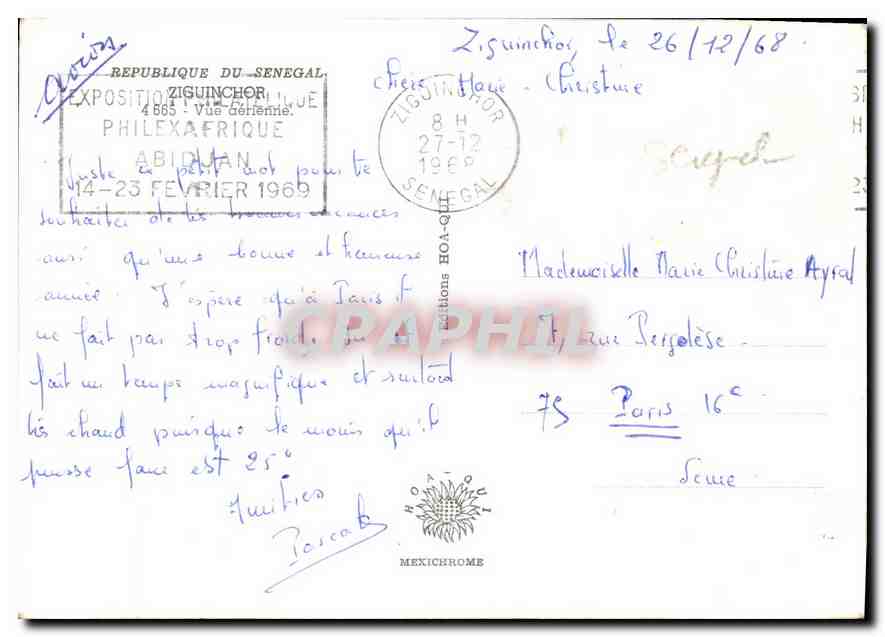 Ziguinchor, le 26/12/68.
Avion
REPUBLIQUE DU SENEGAL
ZIGUINCHOR
4 665 - Vue aérienne.
EXPOSITION PHILATELIQUE
PHILEXAFRIQUE
ABIDJAN
14-23 FEVRIER 1969
ZIGUINCHOR
8 H
27-12
1968
SENEGAL
Chère Marie-Christine
Juste un petit mot pour te
souhaiter de très bonnes vacances
ainsi qu'une bonne et heureuse
année. J'espère qu'à Paris il
ne fait pas trop froid, ici il
fait un temps magnifique et surtout
très chaud puisque le moins qu'il
puisse faire est 25°
Amitiés
Pascale
Editions HOA-QUI
Mademoiselle Marie Christine Ayral
7, rue Pergolèse.
75 Paris 16e
Seine.
CPAPHIL
HOA-QUI
MEXICHROME